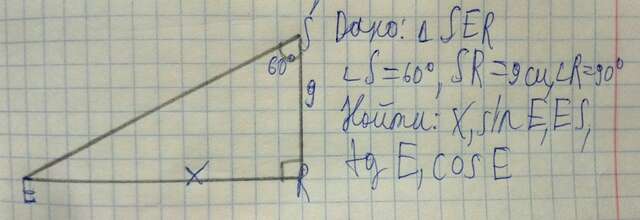 S
60°
9
E
X
R
Дано: △ SER
∠S=60°, SR=9см, ∠R=90°
Найти: X, sin E, ES,
tg E, cos E